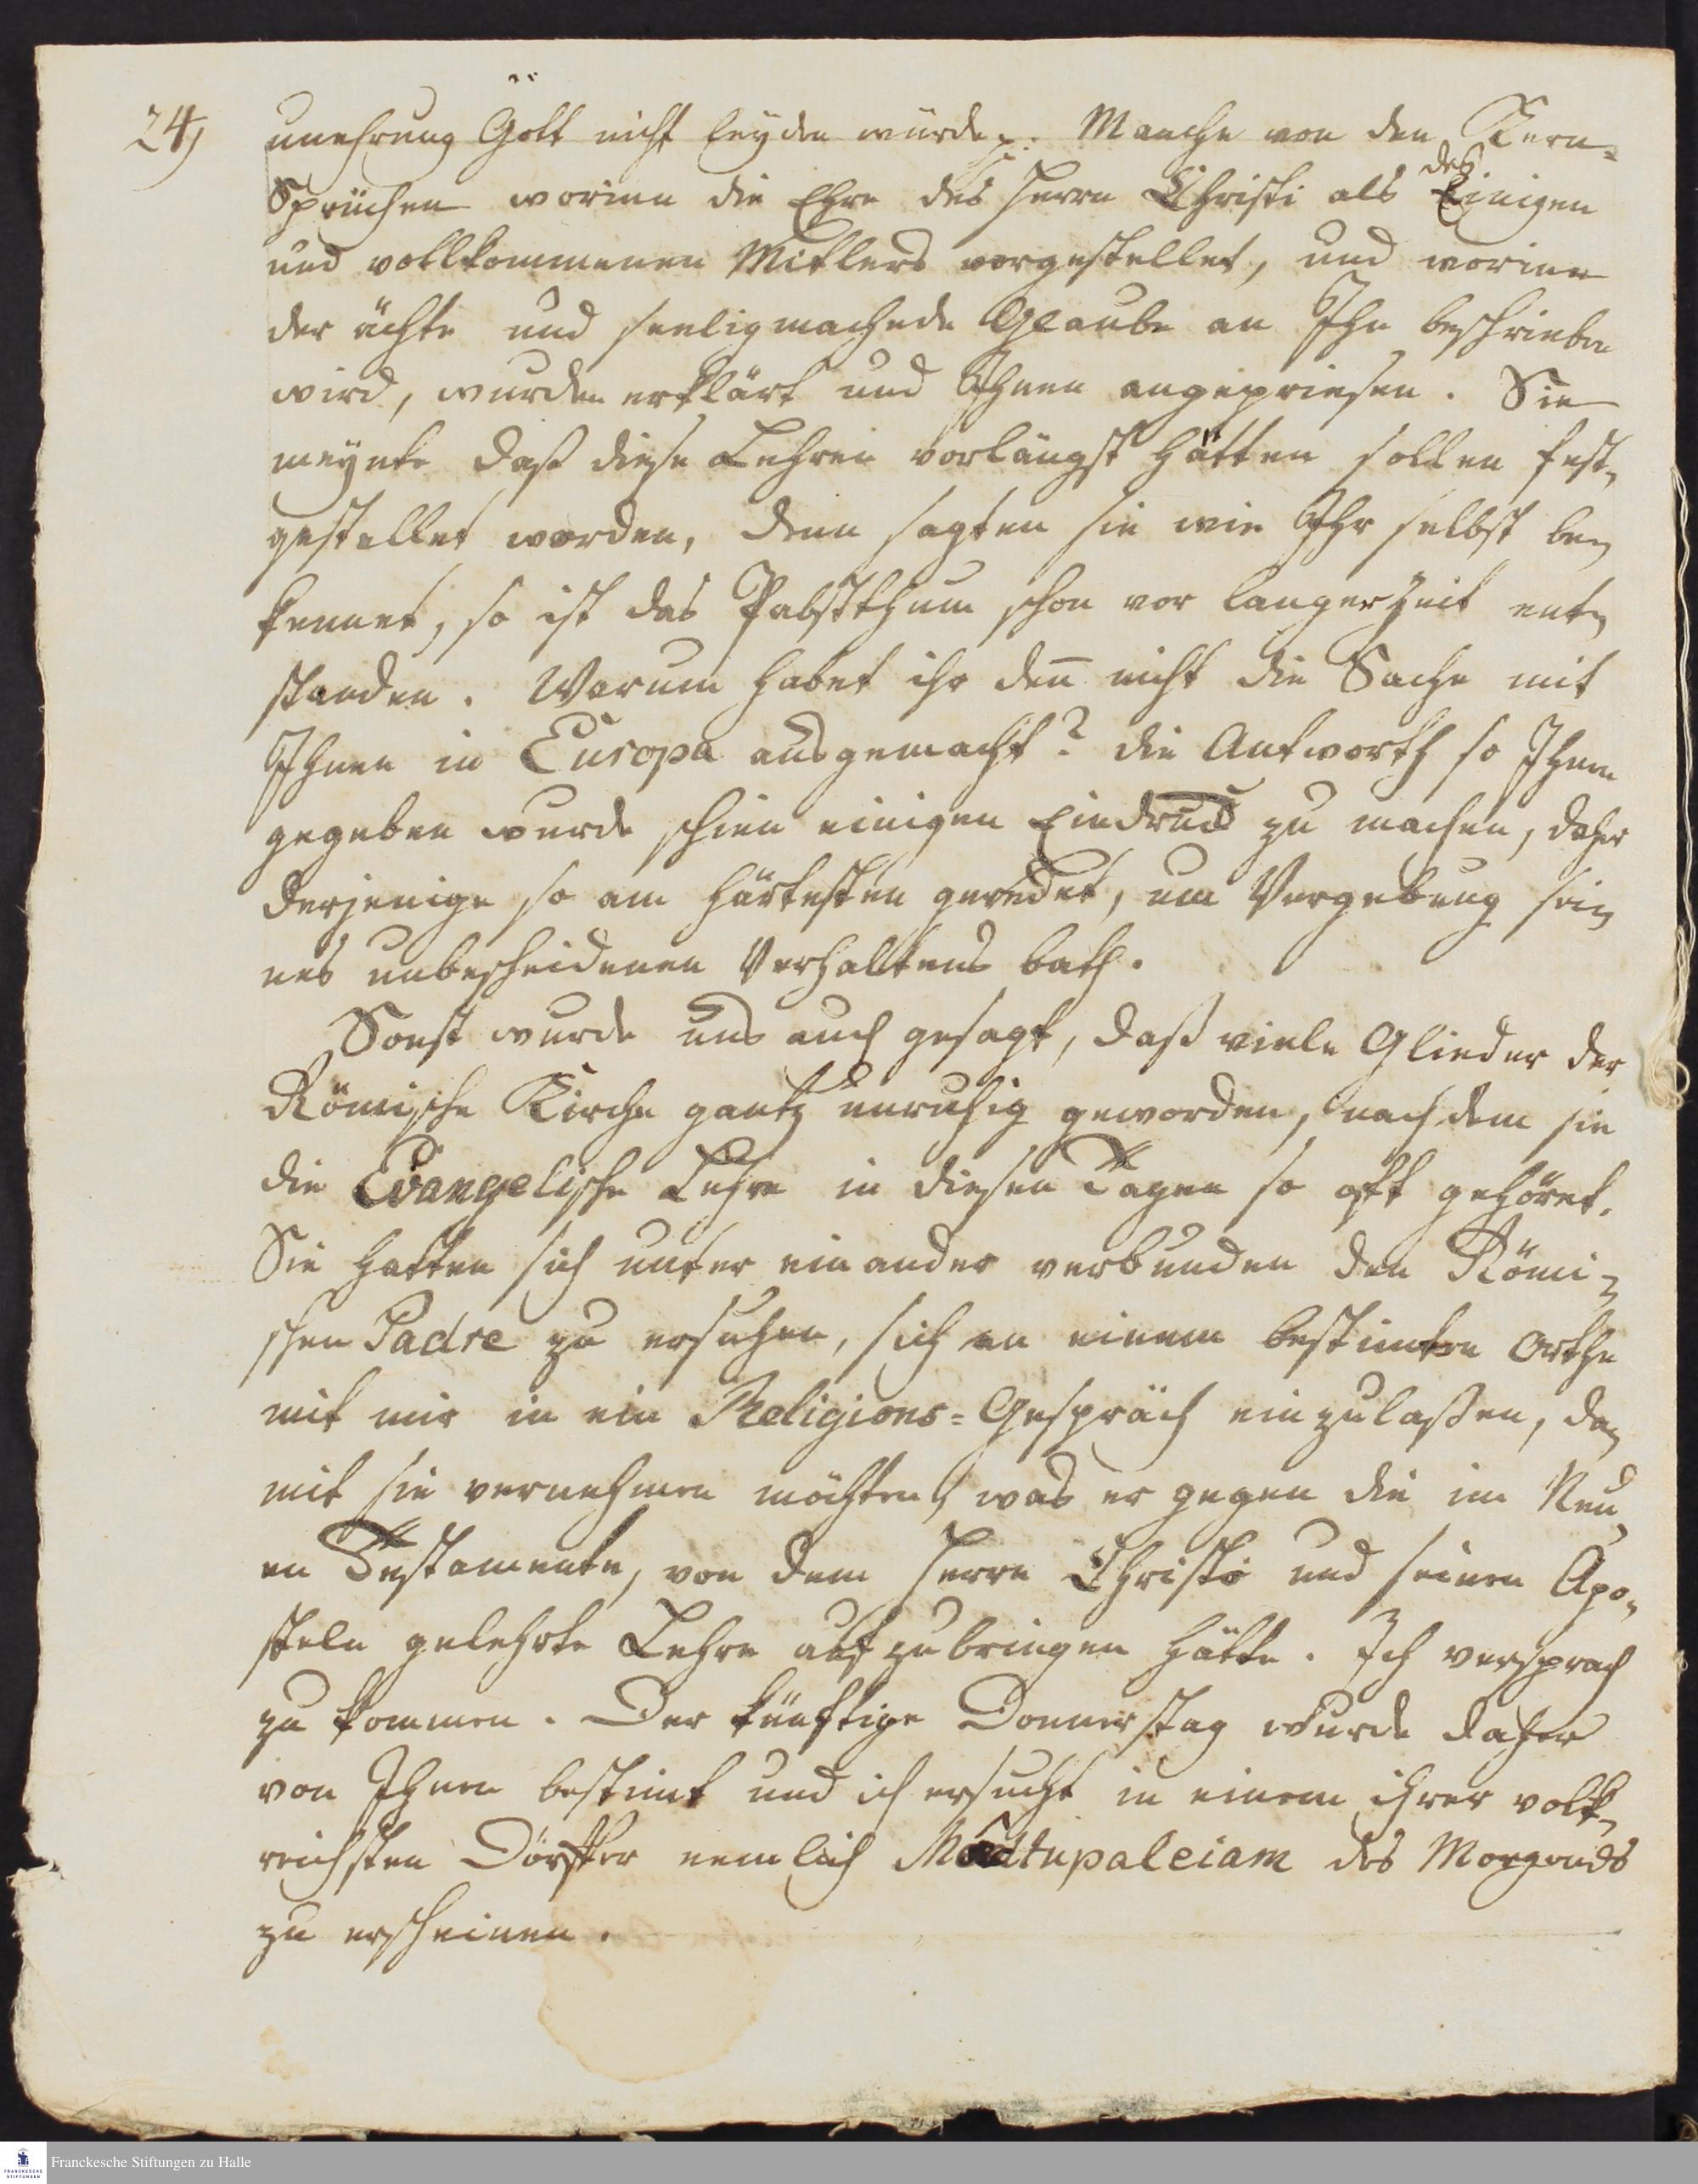 24,
unehrung Gott nicht leyden würde p. Manche von den Kern-
Sprüchen worinn die Ehre des Herrn Christi als des Einigen
und vollkommenen Mitlers vorgestellet, und worinn
der ächte und seeligmachede Glaube an Ihn beschrieben
wird, wurden erklärt und Ihnen angepriesen. Sie
meynte daß diese Lehren vorlängst hätten sollen fest-
gestellet worden, denn sagten sie wie Ihr selbst be-
kennet, so ist das Pabstthum schon vor langer Zeit ent-
standen. Warum habet ihr den̄ nicht die Sache mit
Ihnen in Europa ausgemacht? die Antworth so Ihnen
gegeben wurde schien einigen Eindruck zu machen, daher
derjenige so am härtesten geredet, um Vergebung sei-
nes unbescheidenen Verhaltens bath.
Sonst wurde uns auch gesagt, daß viele Glieder der
Römische Kirche gantz unruhig geworden, nachdem sie
die Evangelische Lehre in diesen Tagen so oft gehöret.
Sie hatten sich unter einander verbunden den Römi-
schen Padre zu ersuchen, sich an einem bestimten Orthe
mit mir in ein Religions-Gespräch einzulaßen, da-
mit sie vernehmen möchten, was er gegen die im Neu-
en Testamente, von dem Herrn Christo und seinen Apo-
steln gelehrte Lehre aufzubringen hätte. Ich versprach
zu kommen. Der künftige Donnerstag wurde daher
von Ihnen bestimt und ich ersucht in einem ihrer volk-
reichsten Dörffer nemlich Mâttupaleiam des Morgends
zu erscheinen.
Franckesche Stiftungen zu Halle
FRANCKESCHE
STIFTUNGEN